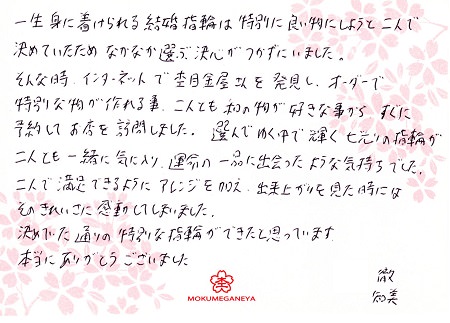 一生身に着けられる結婚指輪は特別に良い物にしようと二人で
決めていたためなかなか選ぶ決心がつかずにいました。
そんな時、インターネットで杢目金屋さんを発見し、オーダーで
特別な物が作れる事、二人とも和の物が好きな事から すぐに
予約してお店を訪問しました。選んでゆく中で輝く七元りの指輪が
二人とも一緒に気に入り、運命の一品に出会ったような気持ちでした。
二人で満足できるようにアレンジを加え、出来上がりを見た時には
そのきれいさに感動してしまいました。
決めていた通りの特別な指輪ができたと思っています
本当にありがとうございました
徹
知美
MOKUMEGANEYA